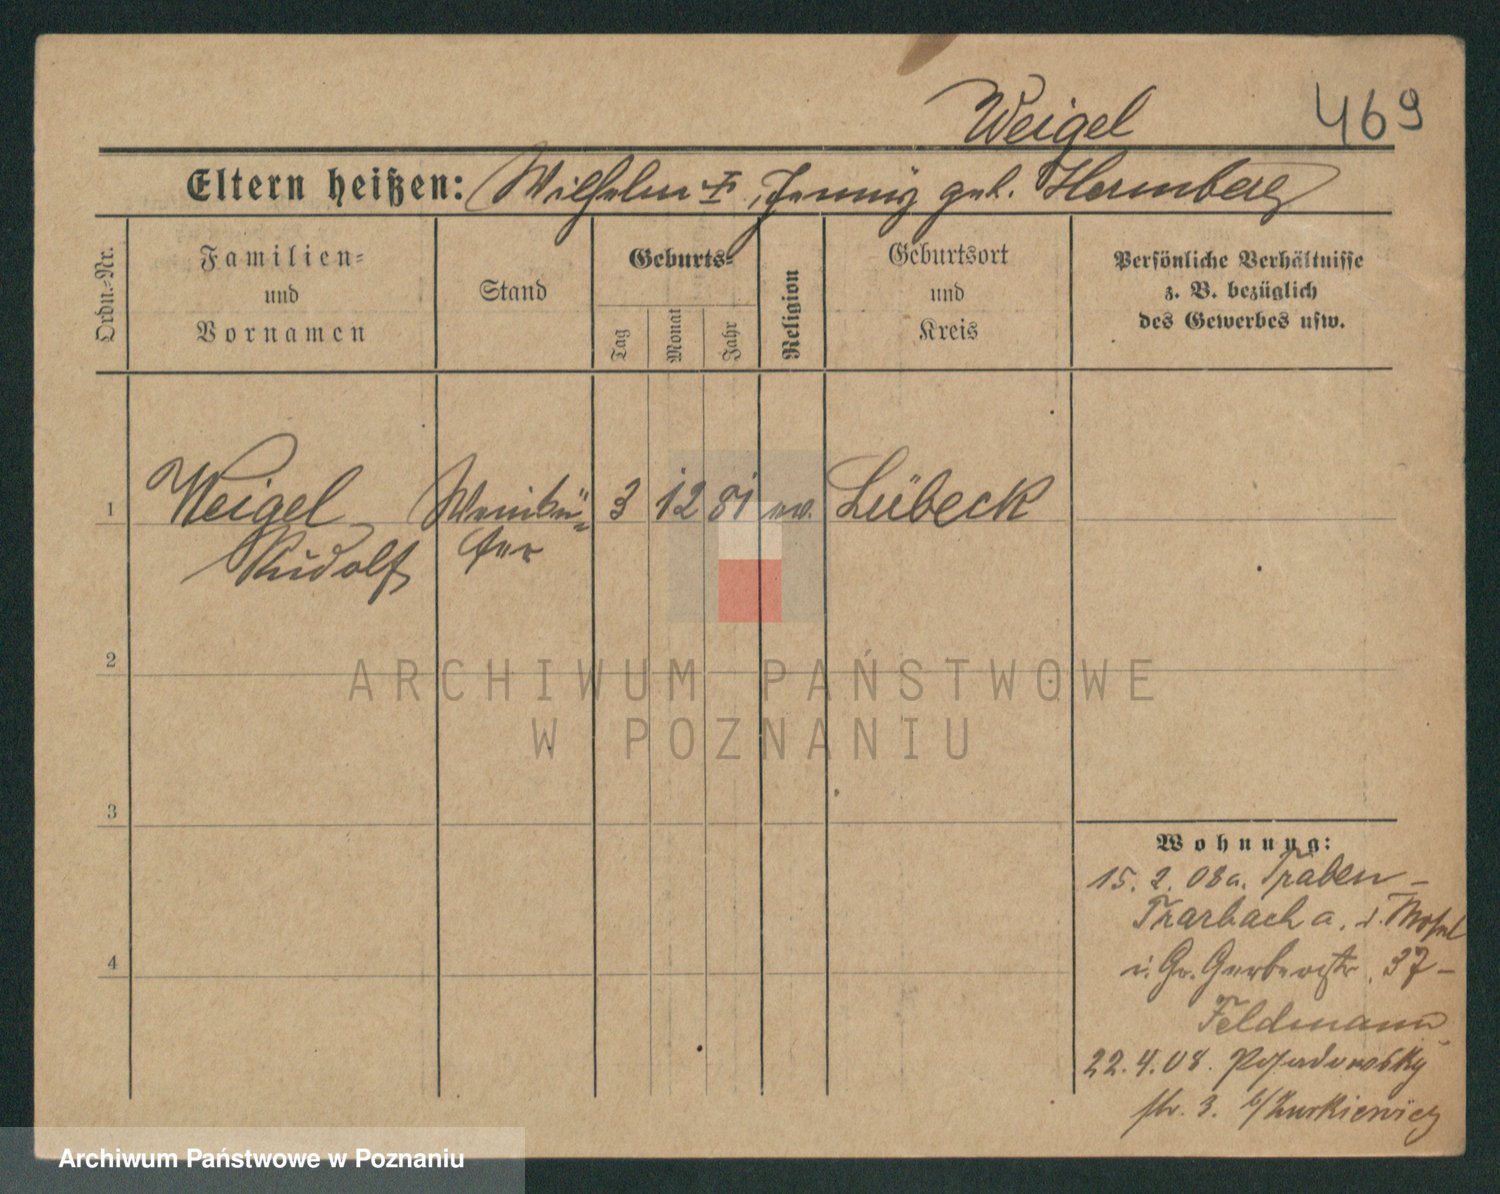 Weigel 469
Eltern heißen: Wilhelm †, Jenny geb. Hermberg
Ordn.-Nr.
Familien-
und
Vornamen
Stand
Geburts-
Tag
Monat
Jahr
Religion
Geburtsort
und
Kreis
Persönliche Verhältnisse
z. B. bezüglich
des Gewerbes usw.
1 Weigel Weinkü- 3 12 81 ev. Lübeck
Rudolf fer
2
3
4
Wohnung:
15. 2. 08 a. Traben-
Trarbach a. d. Mosel
i. Gr. Gerberstr. 37-
Feldmann
22.4.08. Posadowsky
str. 3. b/Zurkiewicz
ARCHIWUM PAŃSTWOWE
W POZNANIU
Archiwum Państwowe w Poznaniu